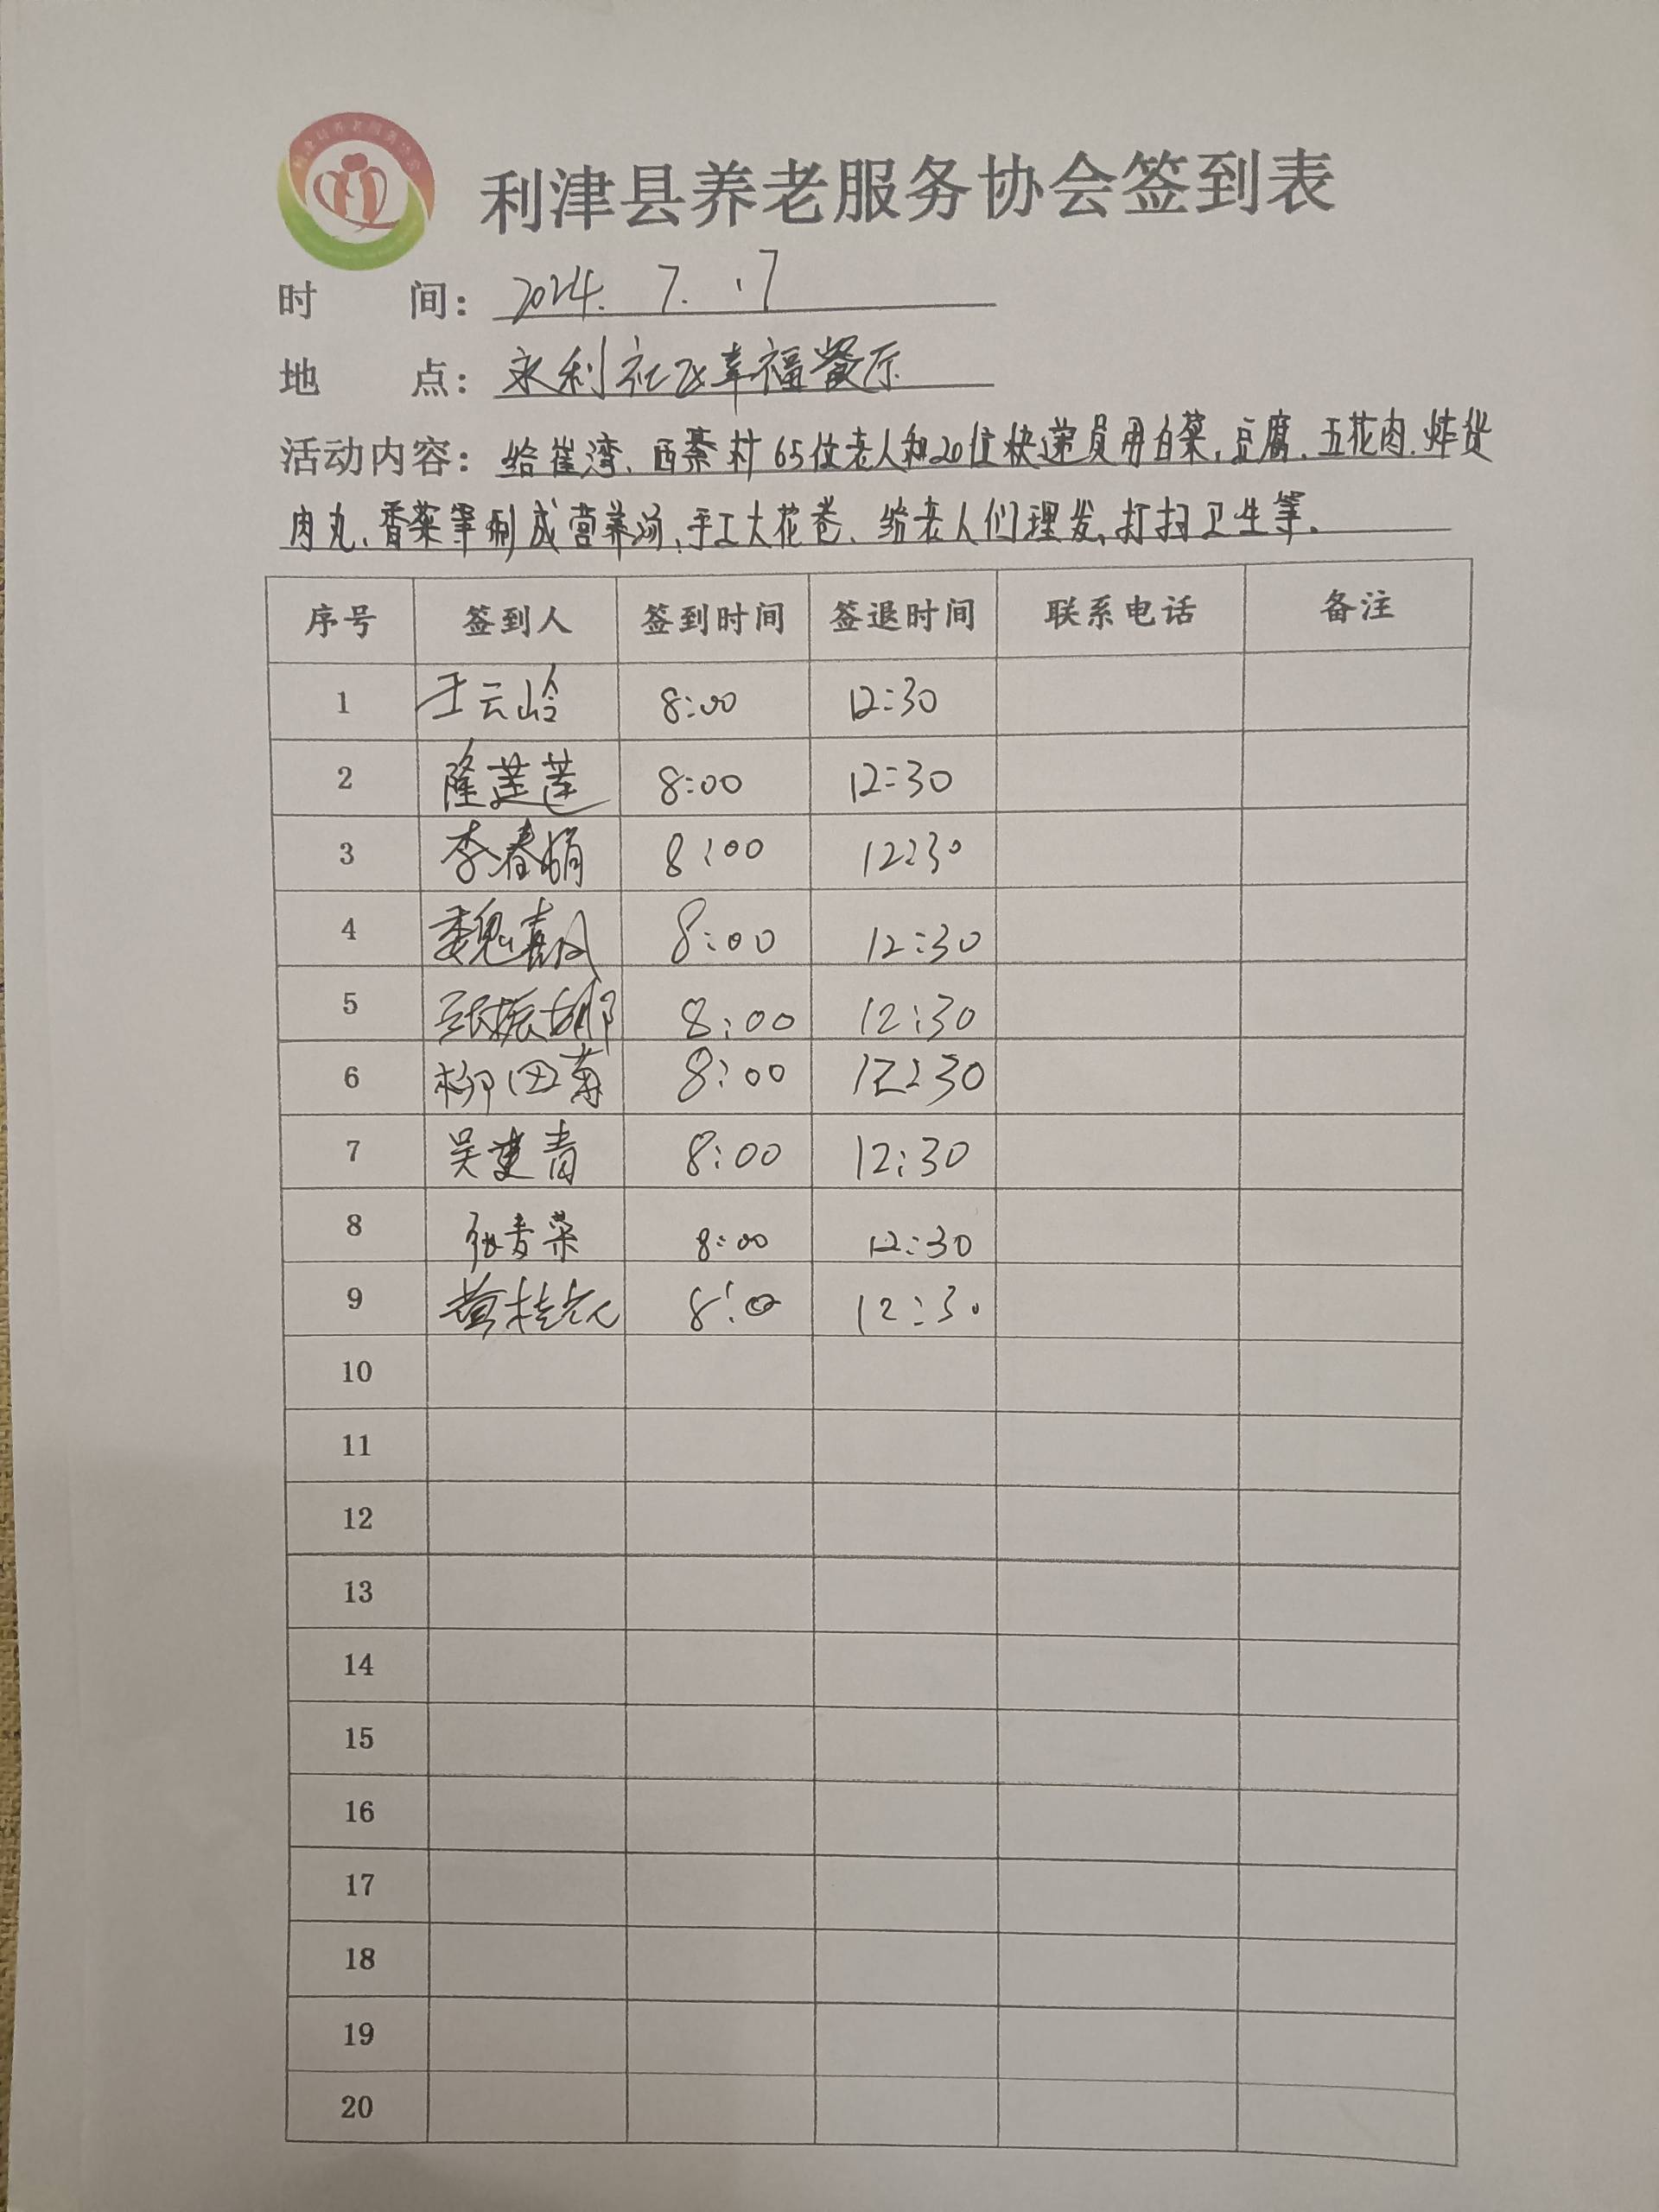 利津县养老服务协会签到表
时 间：2024.7.17
地 点：永利社区幸福餐厅
活动内容：给崔湾、西綦村65位老人和20位快递员用白菜、豆腐、五花肉、炸货
肉丸、香菜等制成营养汤、手工大花卷、给老人们理发、打扫卫生等。
序号 签到人 签到时间 签退时间 联系电话 备注
1 王云岭 8:00 12:30
2 隆莲莲 8:00 12:30
3 李春娟 8:00 12:30
4 魏喜凤 8:00 12:30
5 张振娜 8:00 12:30
6 柳田菊 8:00 12:30
7 吴建青 8:00 12:30
8 张青菜 8:00 12:30
9 黄桂 8:00 12:30
10
11
12
13
14
15
16
17
18
19
20